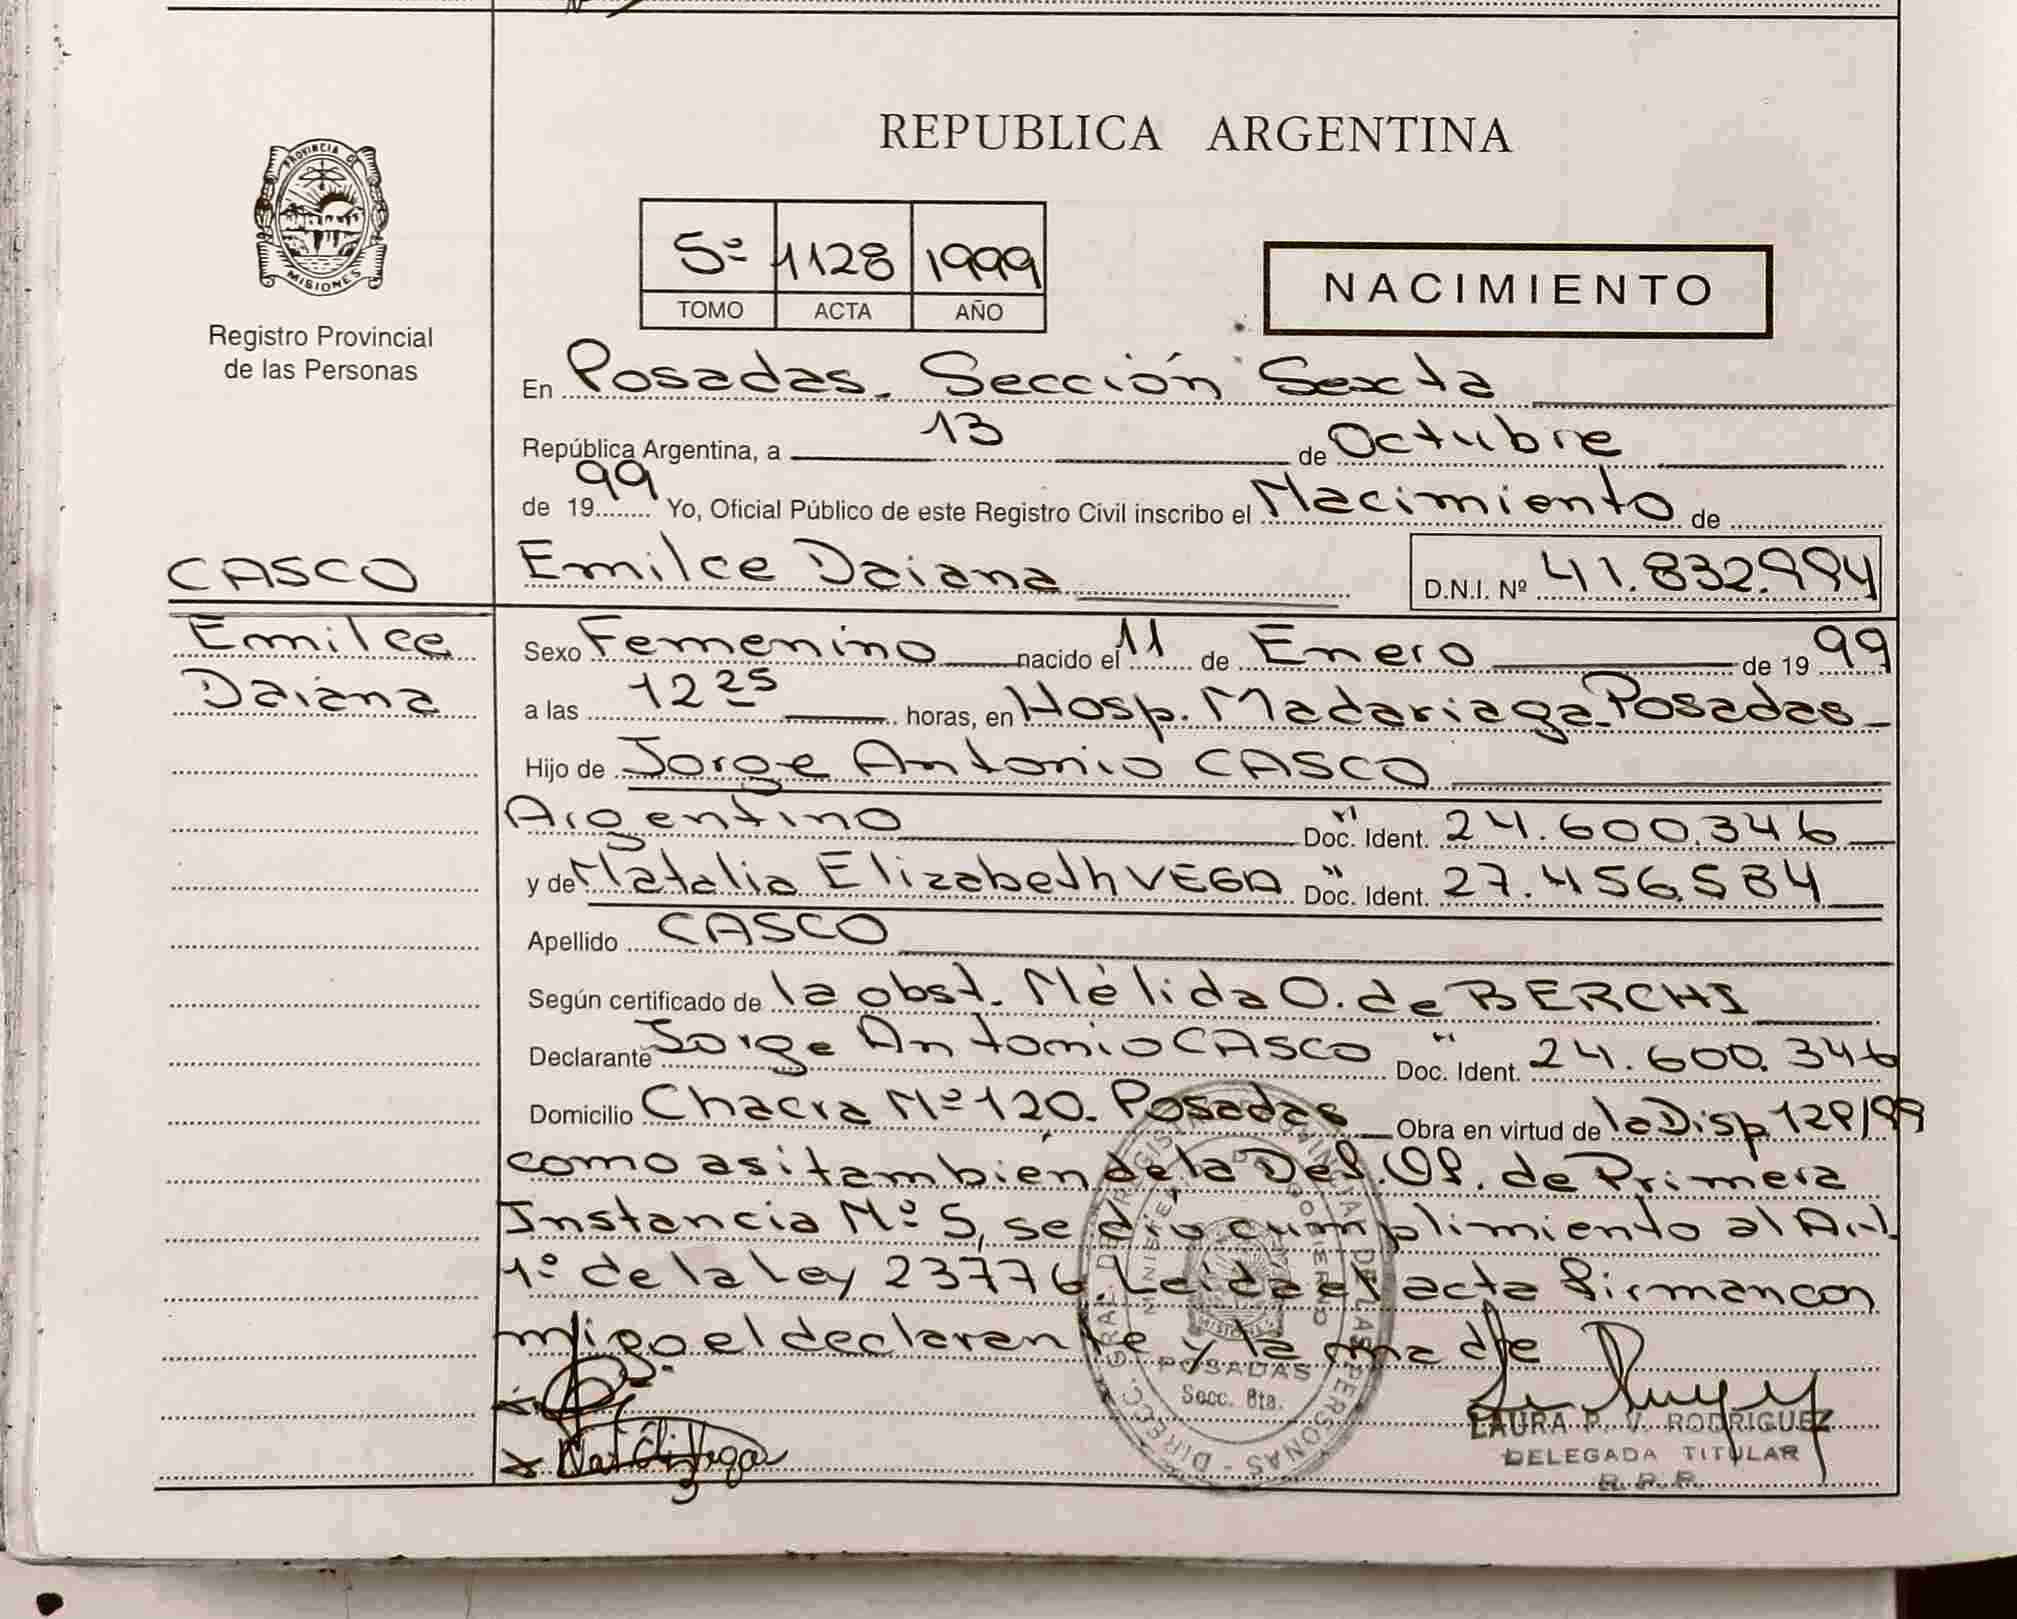 PROVINCIA DE
MISIONES
Registro Provincial
de las Personas
REPUBLICA ARGENTINA
5º 1128 1999
TOMO ACTA AÑO
NACIMIENTO
En Posadas. Sección Sexta
República Argentina, a 13 de Octubre
de 1999 Yo, Oficial Público de este Registro Civil inscribo el Nacimiento de
CASCO
Emilce Daiana D.N.I. Nº 41.832.994
Emilce
Daiana
Sexo Femenino nacido el 11 de Enero de 1999
a las 12 25 horas, en Hosp. Madariaga Posadas
Hijo de Jorge Antonio CASCO
Argentino Doc. Ident. 24.600.346
y de Natalia Elizabeth VEGA Doc. Ident. 27.456.584
Apellido CASCO
Según certificado de la obst. Nélida O. de BERCHI
Declarante Jorge Antonio CASCO Doc. Ident. 24.600.346
Domicilio Chacra Nº 120. Posadas Obra en virtud de la Disp. /99
como asi tambien de la Def. Of. de Primera
Instancia Nº 5, se dio cumplimiento al Art.
1º de la Ley 23776. Leida el acta firman con
migo el declarante y la madre
POSADAS
Secc. 6ta.
LAURA P. V. RODRIGUEZ
DELEGADA TITULAR
R.P.P.